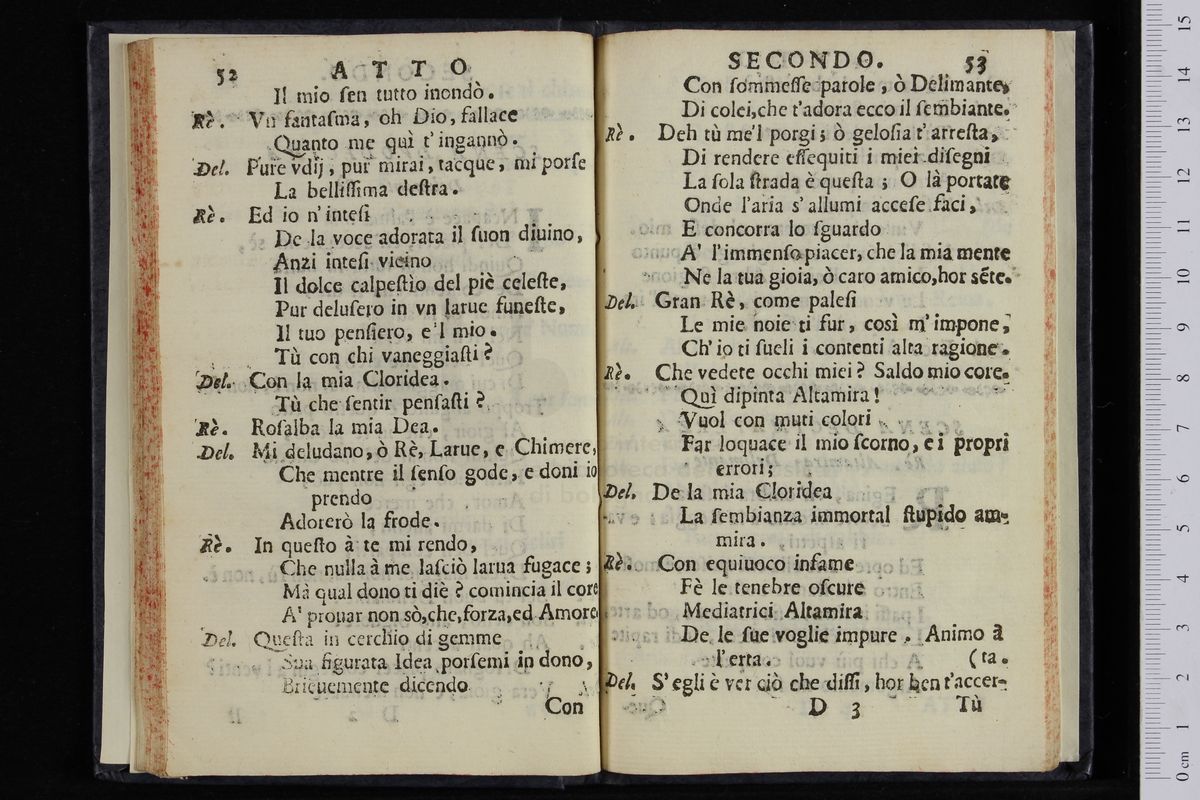 52 ATTO
Il mio ſen tutto inondò.
Rè. Vn fantaſma, oh Dio, fallace
Quanto me quì t' ingannò.
Del. Pure vdij, pur mirai, tacque, mi porſe
La belliſſima deſtra.
Rè. Ed io n' inteſi
De la voce adorata il ſuon diuino,
Anzi inteſi vicino
Il dolce calpeſtìo del piè celeſte,
Pur deluſero in vn larue funeſte,
Il tuo penſiero, e'l mio.
Tù con chi vaneggiaſti?
Del. Con la mia Cloridea.
Tù che ſentir penſaſti?
Rè. Roſalba la mia Dea.
Del. Mi deludano, ò Rè, Larue, e Chimere,
Che mentre il ſenſo gode, e doni io
prendo
Adorerò la frode.
Rè. In queſto à te mi rendo,
Che nulla à me laſciò larua fugace;
Mà qual dono ti diè? comincia il core
A' prouar non sò, che, forza, ed Amore
Del. Queſta in cerchio di gemme
Sua figurata Idea porſemi in dono,
Brieuemente dicendo
Con
SECONDO. 53
Con ſommeſſe parole, ò Delimante,
Di colei, che t'adora ecco il ſembiante.
Rè. Deh tù me'l porgi; ò geloſia t' arreſta,
Di rendere eſſequiti i miei diſegni
La ſola ſtrada è queſta; O là portate
Onde l'aria s' allumi acceſe faci,
E concorra lo ſguardo
A' l'immenſo piacer, che la mia mente
Ne la tua gioia, ò caro amico, hor sẽte.
Del. Gran Rè, come paleſi
Le mie noie ti fur, così m' impone,
Ch' io ti ſueli i contenti alta ragione.
Rè. Che vedete occhi miei? Saldo mio core.
Quì dipinta Altamira!
Vuol con muti colori
Far loquace il mio ſcorno, e i propri
errori;
Del. De la mia Cloridea
La ſembianza immortal ſtupido am-
mira.
Rè. Con equiuoco infame
Fè le tenebre oſcure
Mediatrici Altamira
De le ſue voglie impure. Animo à
l'erta. (ta.
Del. S' egli è ver ciò che diſſi, hor ben t'accer-
D 3 Tù